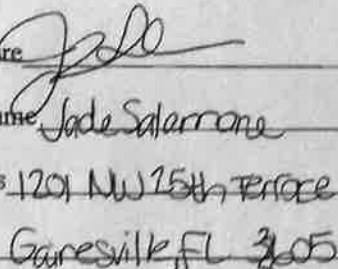 re
ame Jade Salamone
s 1201 NW 25th Terrace
Gainesville, FL 32605